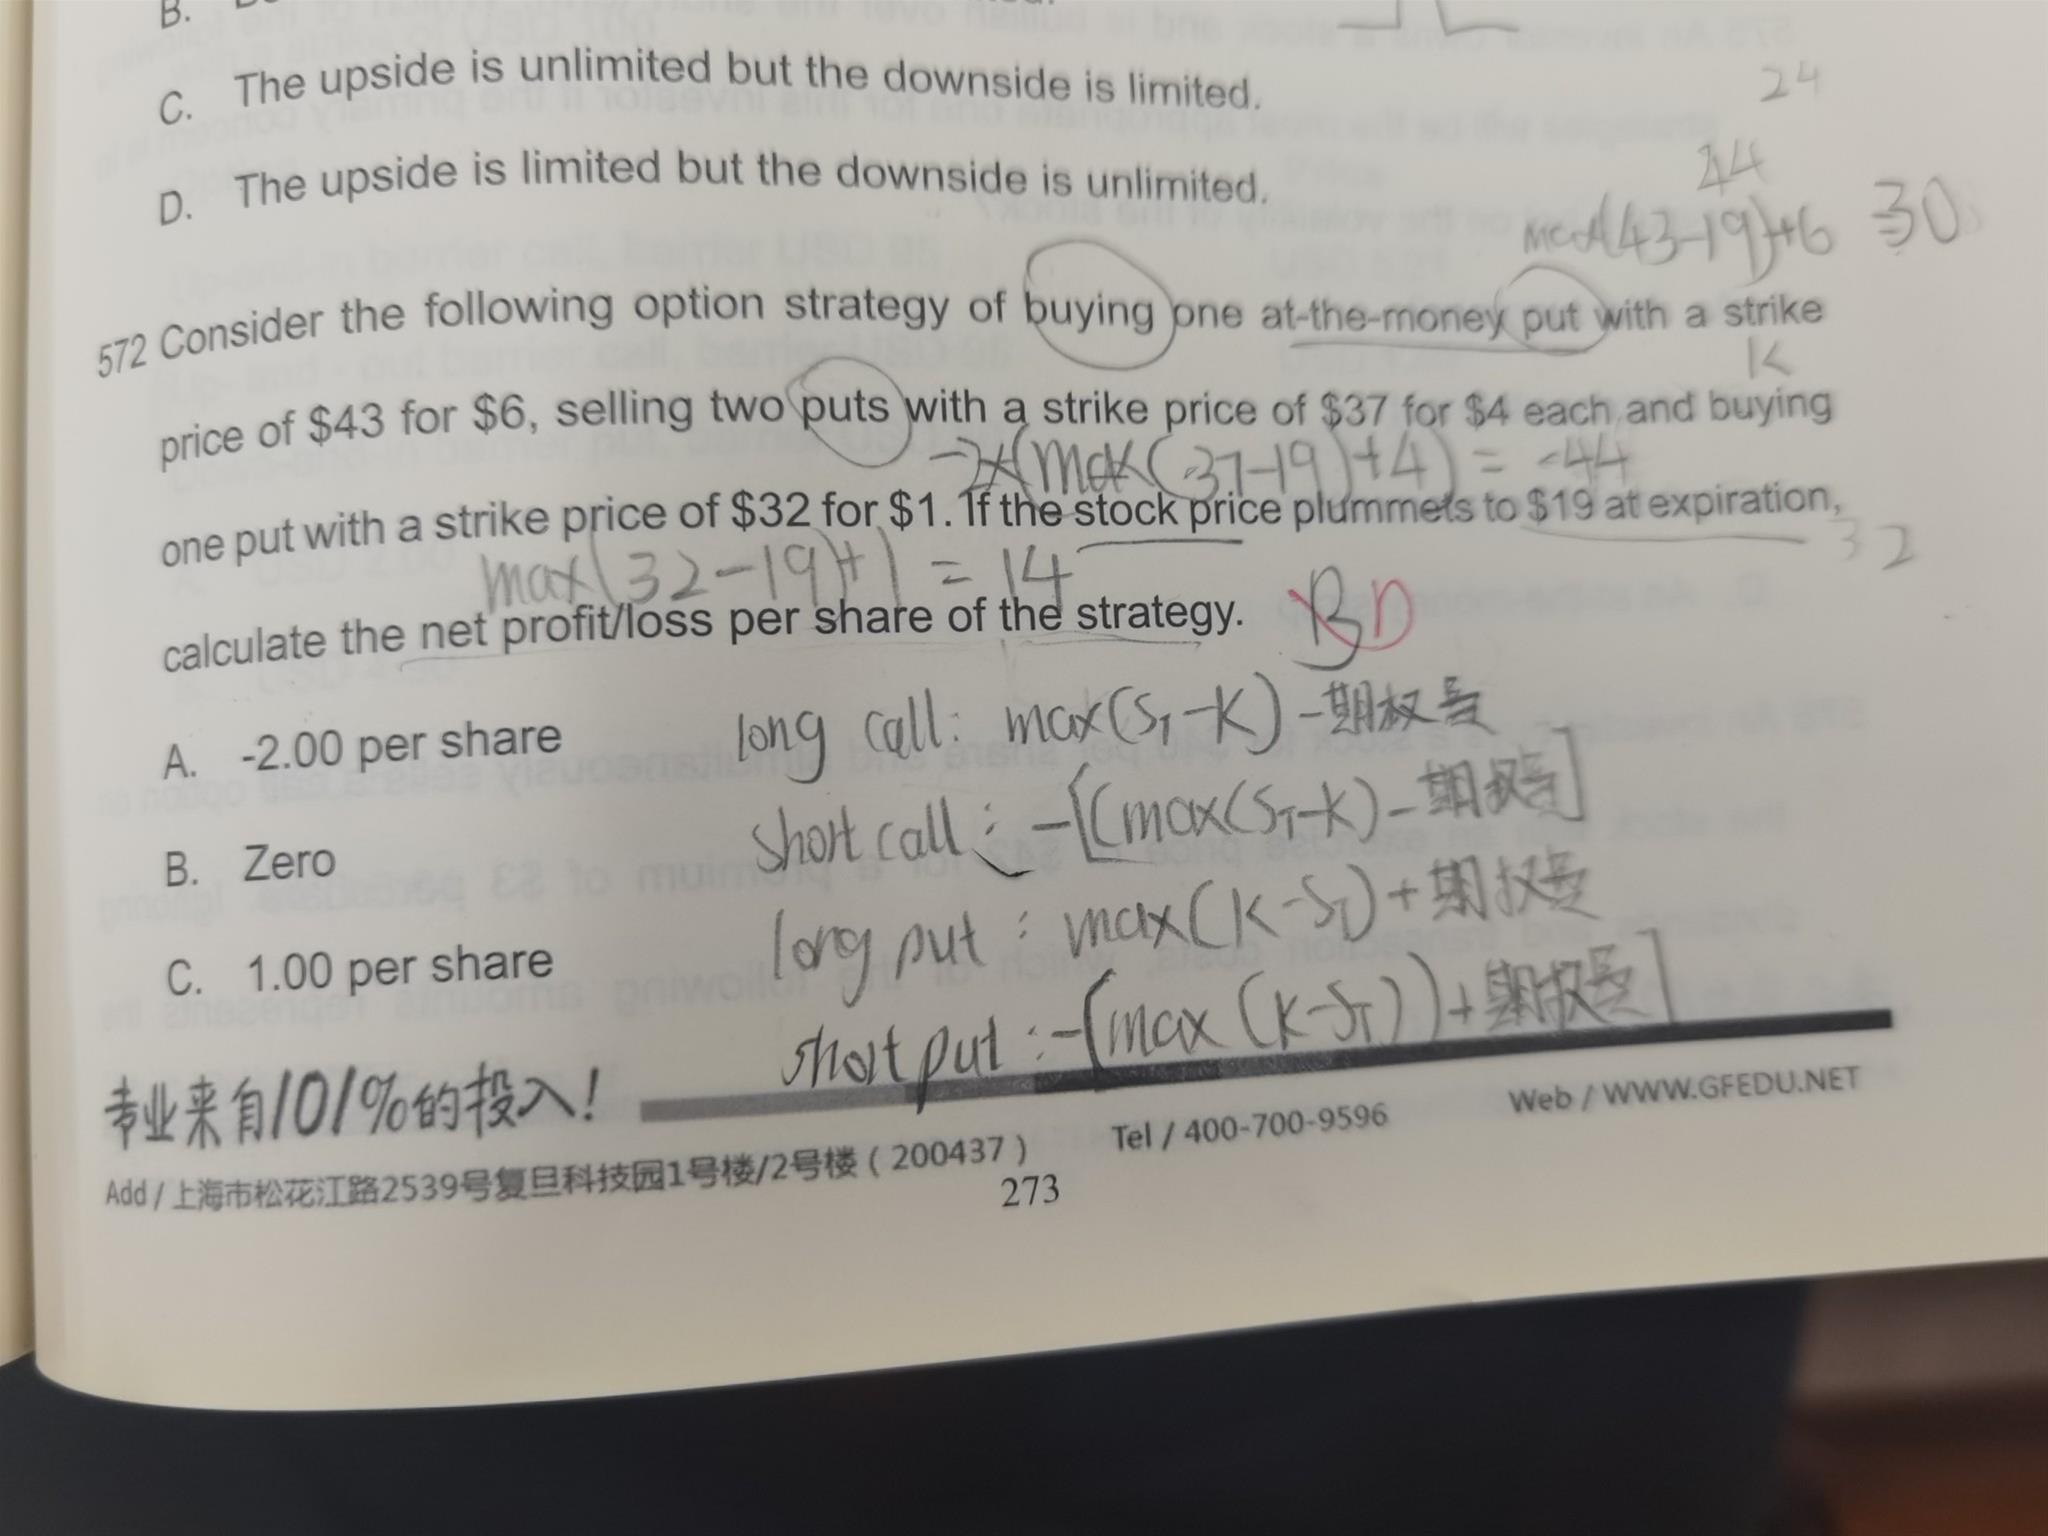 B.
C. The upside is unlimited but the downside is limited.
24
D. The upside is limited but the downside is unlimited.
44
(43-19)+6 =30
572 Consider the following option strategy of buying one at-the-money put with a strike
K
price of $43 for $6, selling two puts with a strike price of $37 for $4 each and buying
-2×(max(37-19)+4) = -44
one put with a strike price of $32 for $1. If the stock price plummets to $19 at expiration,
32
max(32-19)+1 = 14
calculate the net profit/loss per share of the strategy. B D
A. -2.00 per share
long call: max(ST-K)-期权费
B. Zero
short call: -[(max(ST-K)-期权费]
C. 1.00 per share
long put: max(K-ST)+期权费
short put: -[max(K-ST))+期权费]
专业来自101%的投入!
Add / 上海市松花江路2539号复旦科技园1号楼/2号楼(200437) Tel / 400-700-9596 Web / WWW.GFEDU.NET
273